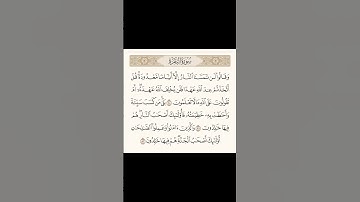 سُورَةُ البَقَرَةِ
وَقَالُوا۟ لَن تَمَسَّنَا ٱلنَّارُ إِلَّآ أَيَّامًا مَّعْدُودَةً ۚ قُلْ
أَتَّخَذْتُمْ عِندَ ٱللَّهِ عَهْدًا فَلَن يُخْلِفَ ٱللَّهُ عَهْدَهُۥٓ ۖ أَمْ
تَقُولُونَ عَلَى ٱللَّهِ مَا لَا تَعْلَمُونَ ۝ بَلَىٰ مَن كَسَبَ سَيِّئَةً
وَأَحَٰطَتْ بِهِۦ خَطِيٓـَٔتُهُۥ فَأُو۟لَٰٓئِكَ أَصْحَٰبُ ٱلنَّارِ ۖ هُمْ
فِيهَا خَٰلِدُونَ ۝ وَٱلَّذِينَ ءَامَنُوا۟ وَعَمِلُوا۟ ٱلصَّٰلِحَٰتِ
أُو۟لَٰٓئِكَ أَصْحَٰبُ ٱلْجَنَّةِ ۖ هُمْ فِيهَا خَٰلِدُونَ ۝